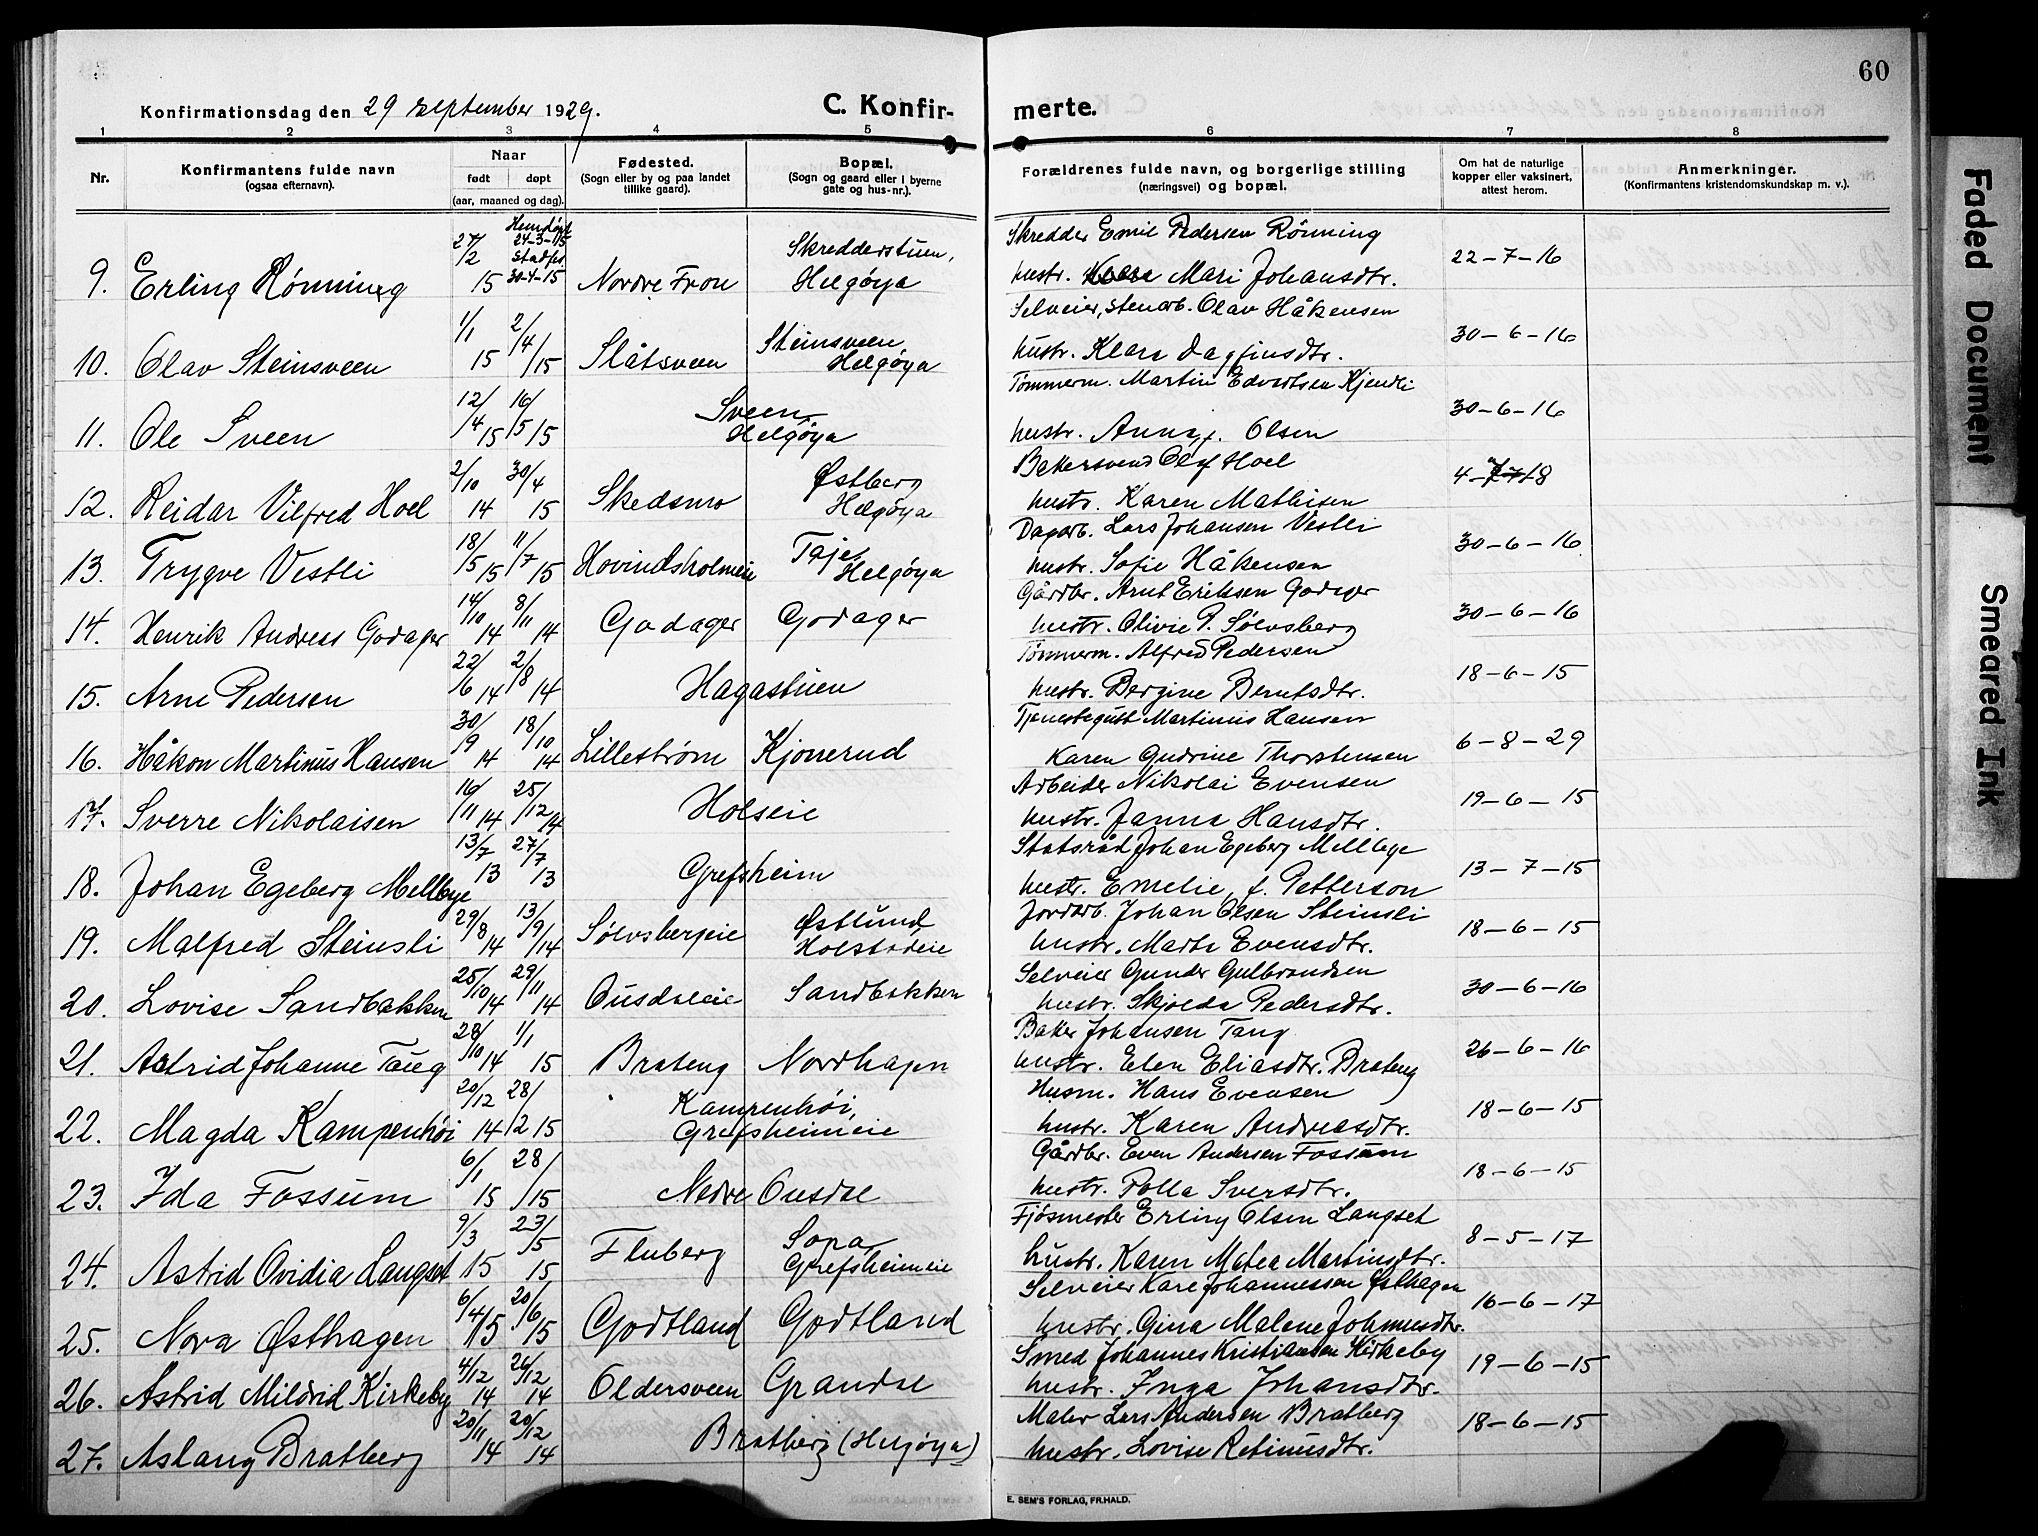 60
Konfirmationsdag den 29 september 1929.
C. Konfir-
merte.
1 2 3 4 5 6 7 8
Nr.
Konfirmantens fulde navn
(ogsaa efternavn).
Naar
født døpt
(aar, maaned og dag).
Fødested.
(Sogn eller by og paa landet
tillike gaard).
Bopæl.
(Sogn og gaard eller i byerne
gate og hus-nr.).
Forældrenes fulde navn, og borgerlige stilling
(næringsvei) og bopæl.
Om hat de naturlige
kopper eller vaksinert,
attest herom.
Anmerkninger.
(Konfirmantens kristendomskundskap m. v.).
Hemdøpt
27/2 24-3-15 Skredderstuen, Skredder Emil Pedersen Rønning
Stadfes
9. Erling Rønning 15 30-4-15 Nordre Fron Helgøya hustr. Mari Johansdtr. 22-7-16
1/1 2/4 Steinsveen Selveier, stenarb. Olav Håkensen
10. Olav Steinsveen 15 15 Slåtsveen Helgøya hustr. Klara Dagfinsdtr. 30-6-16
12/4 16/5 Sveen Tømmerm. Martin Edvartsen Kjendli
11. Ole Sveen 15 15 Helgøya hustr. Anna f. Olsen 30-6-16
2/10 30/4 Østberg Bakersvend Olaf Hoel
12. Reidar Vilfred Hoel 14 15 Skedsmo Helgøya hustr. Karen Mathisen 4-7-18
18/5 11/7 Taje Dagarb. Lars Johansen Vestli
13. Trygve Vestli 15 15 Hovindsholmeie Helgøya hustr. Sofie Håkensen 30-6-16
14/10 8/11 Gårdbr. Arnt Eriksen Godager
14. Henrik Andreas Godager 14 14 Godager Godager hustr. Olivie P. Sølvsberg 30-6-16
22/6 2/8 Tømmerm. Alfred Pedersen
15. Arne Pedersen 14 14 Hagastuen hustr. Bergine Berntsdtr. 18-6-15
30/9 18/10 Tjenestegutt Martinus Hansen
16. Håkon Martinus Hansen 14 14 Lillestrøm Kjonerud Karen Gudrine Thorstensen 6-8-29
16/11 25/12 Arbeider Nikolai Evensen
17. Sverre Nikolaisen 14 14 Holseie hustr. Janna Hansdtr. 19-6-15
13/7 27/7 Statsråd Johan Egeberg Mellbye
18. Johan Egeberg Mellbye 13 13 Grefsheim hustr. Emelie, f. Petterson 13-7-15
29/8 13/9 Østlund Jordarb. Johan Olsen Steinsli
19. Malfred Steinsli 14 14 Sølvsbergeie Holstadeie hustr. Marte Evensdtr. 18-6-15
25/10 29/11 Selveier Gunder Gulbrandsen
20. Lovise Sandbakken 14 14 Ousdaleie Sandbakken hustr. Skjolda Pedersdtr. 30-6-16
28/10 1/1 Baker Johansen Tang
21. Astrid Johanne Taug 14 15 Brateng Nordhagen hustr. Elen Eliasdtr. Brateng 26-6-16
20/12 28/2 Kampenhøi, Husm. Hans Evensen
22. Magda Kampenhøi 14 15 Grefsheimeie hustr. Karen Andreasdtr. 18-6-15
6/1 28/ Gårdbr. Even Andersen Fossum
23. Ida Fossum 15 15 Nedre Ousdal hustr. Polla Sversdtr. 18-6-15
9/3 23/5 Sopa Fjøsmester Erling Olsen Langset
24. Astrid Ovidia Langset 15 15 Fluberg Grefsheimeie hustr. Karen Matea Martinsdtr. 8-5-17
6/4 20/6 Selveier Kare Johannessen Østhagen
25. Nora Østhagen 15 15 Godtland Godtland hustr. Gina Malene Johannesdtr. 16-6-17
4/12 26/12 Smed Johannes Kristiansen Kirkeby
26. Astrid Mildrid Kirkeby 14 14 Oldersveen Grandal hustr. Inga Johansdtr. 19-6-15
20/11 20/12 Maler Lars Andersen Bratberg
27. Aslaug Bratberg 14 14 Bratberg (Helgøya) hustr. Lovise Retinusdtr. 18-6-15
E. SEM'S FORLAG, FR.HALD.
Faded Document
Smeared Ink